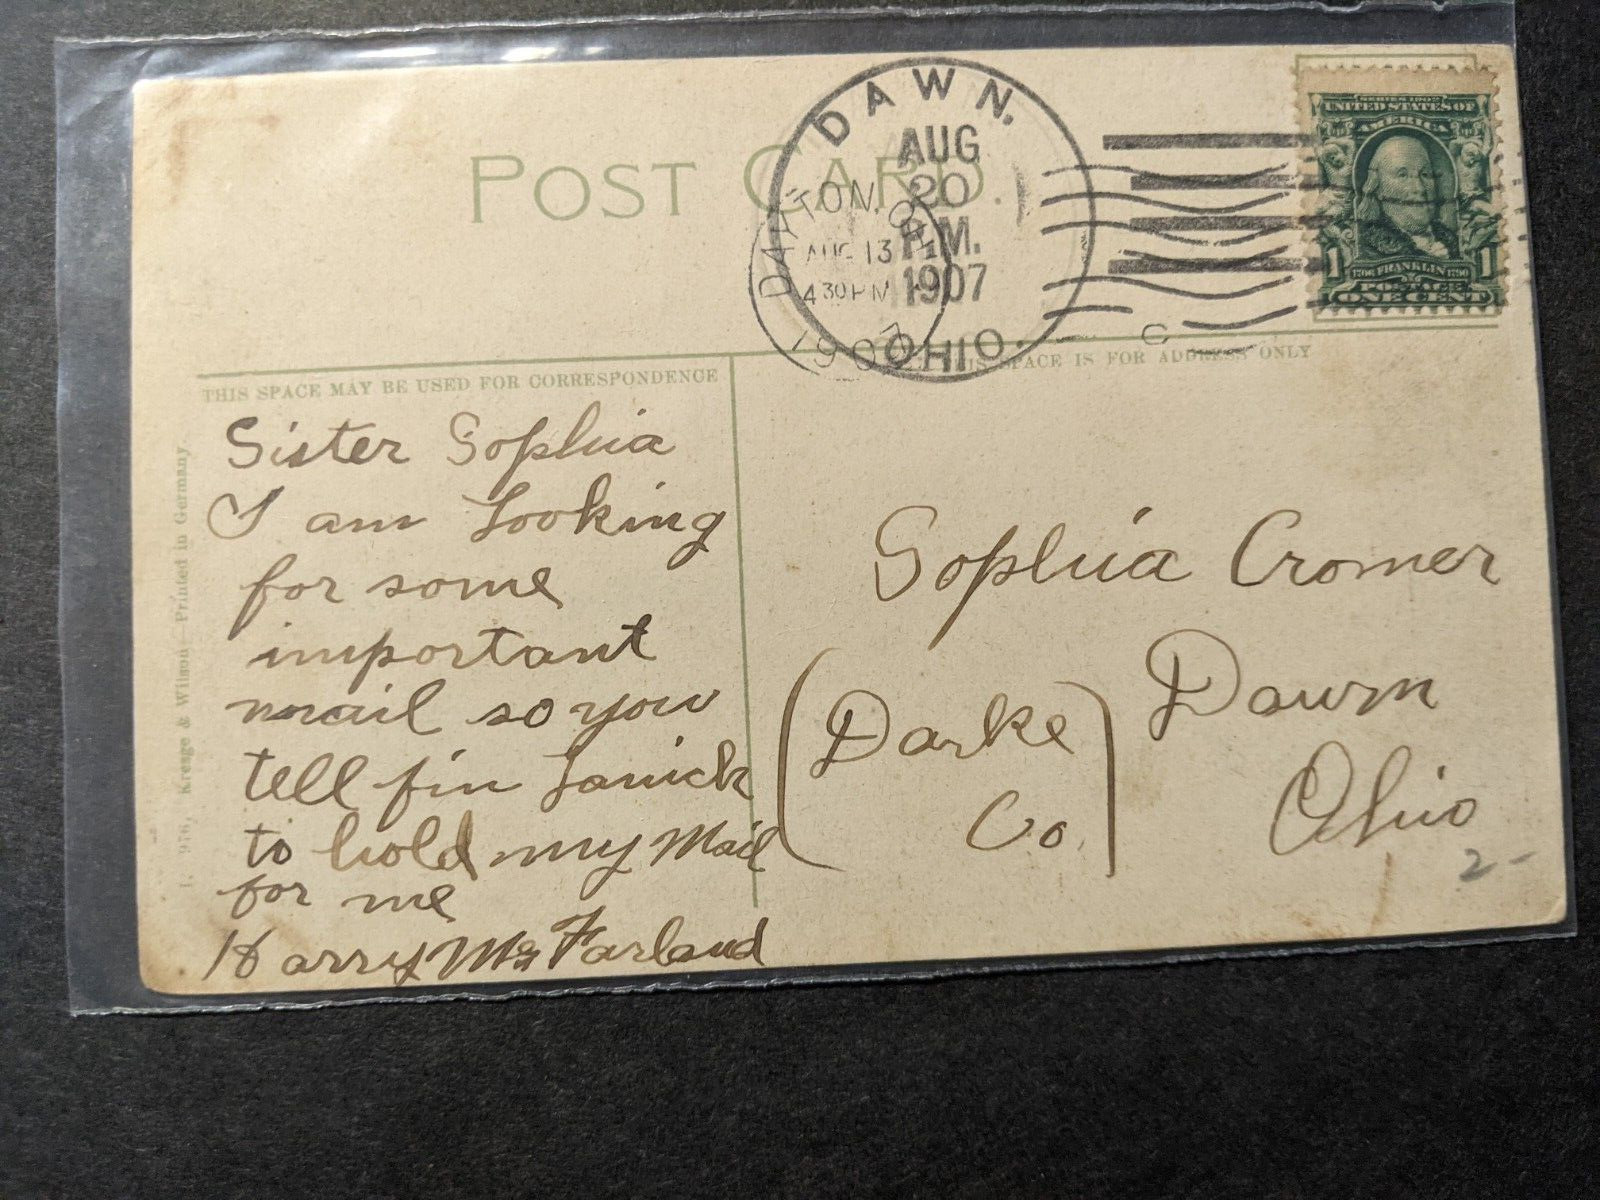 POST CARD.
DAWN.
AUG
20
P.M.
1907
OHIO.
DAYTON, O.
AUG 13
4 30 PM
1907
SERIES 1902
UNITED STATES OF
AMERICA
1 1706 FRANKLIN 1790 1
POSTAGE
ONE CENT
C
THIS SPACE MAY BE USED FOR CORRESPONDENCE
THIS SPACE IS FOR ADDRESS ONLY
Kresge & Wilson—Printed in Germany.
Sister Sophia
I am Looking
for some
important
mail so you
tell fin
to hold my Mail
for me
Harry McFarland
Sophia Cromer
(Darke Co.)
Dawn
Ohio
2-